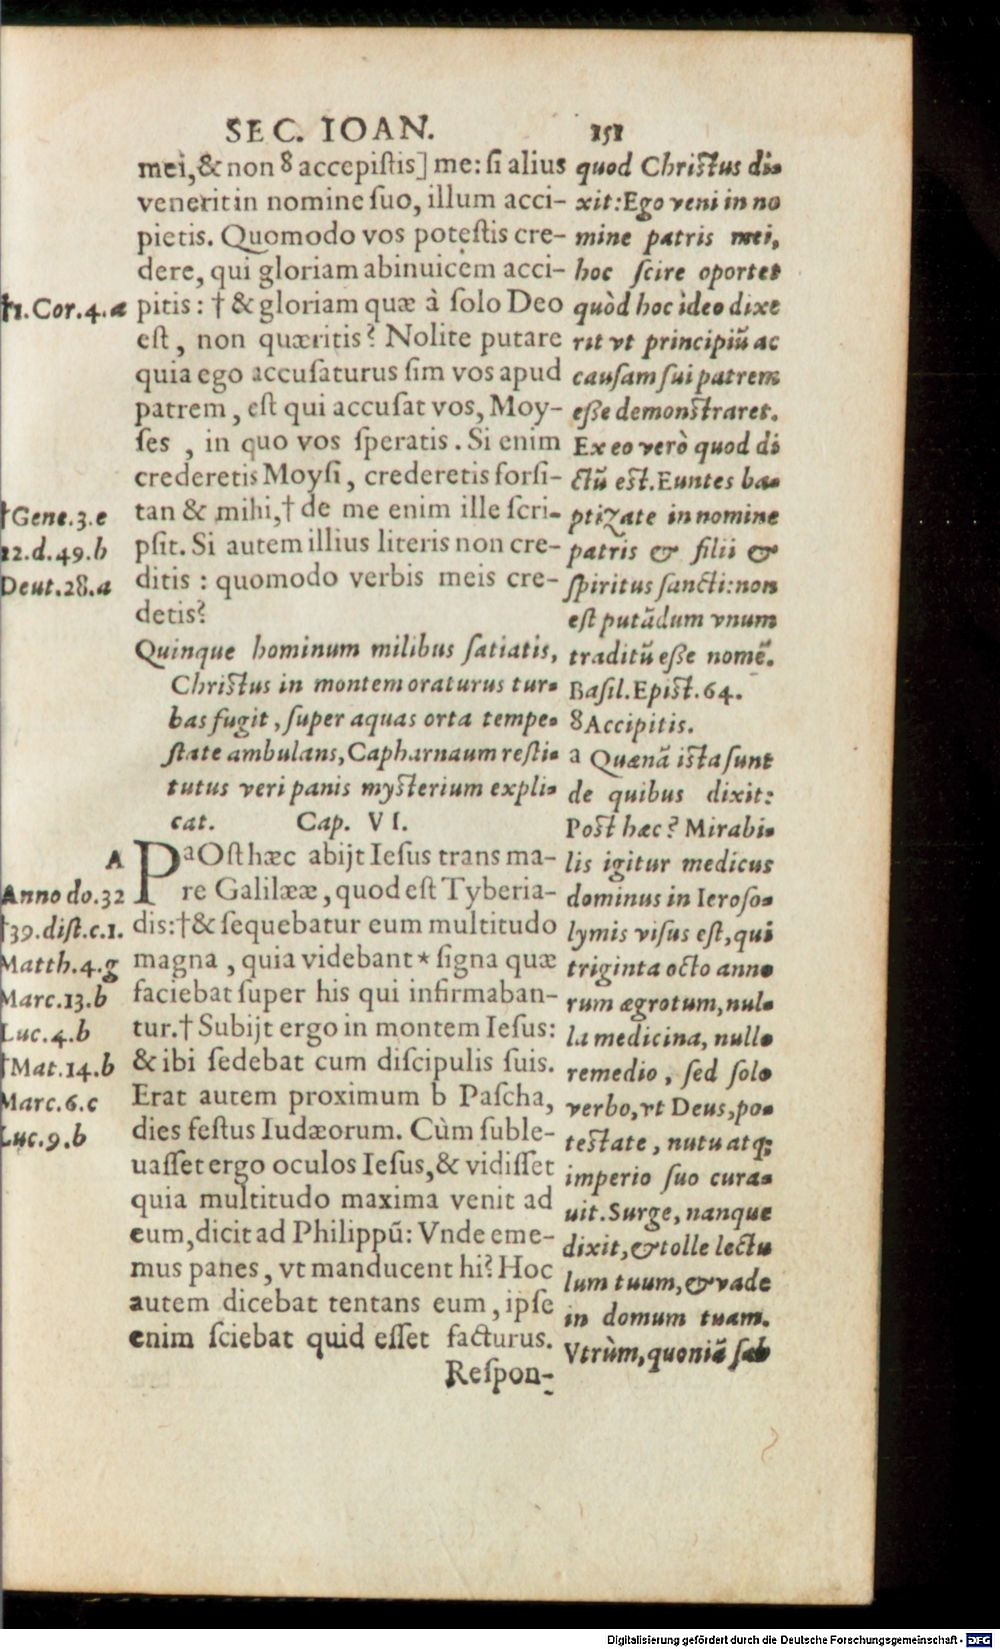 SEC. IOAN. 151
mei,& non 8 accepistis] me: si alius
venerit in nomine suo, illum acci-
pietis. Quomodo vos potestis cre-
dere, qui gloriam abinuicem acci-
pitis: † & gloriam quæ à solo Deo
est, non quæritis? Nolite putare
quia ego accusaturus sim vos apud
patrem, est qui accusat vos, Moy-
ses , in quo vos speratis. Si enim
crederetis Moysi, crederetis forsi-
tan & mihi,† de me enim ille scri-
psit. Si autem illius literis non cre-
ditis : quomodo verbis meis cre-
detis?
Quinque hominum milibus satiatis,
Christus in montem oraturus tur-
bas fugit, super aquas orta tempe-
state ambulans, Capharnaum resti-
tutus veri panis mysterium expli-
cat. Cap. VI.
PaOst hæc abijt Iesus trans ma-
re Galilææ, quod est Tyberia-
dis:†& sequebatur eum multitudo
magna, quia videbant * signa quæ
faciebat super his qui infirmaban-
tur.† Subijt ergo in montem Iesus:
& ibi sedebat cum discipulis suis.
Erat autem proximum b Pascha,
dies festus Iudæorum. Cùm suble-
uasset ergo oculos Iesus,& vidisset
quia multitudo maxima venit ad
eum, dicit ad Philippũ: Vnde eme-
mus panes, vt manducent hi? Hoc
autem dicebat tentans eum, ipse
enim sciebat quid esset facturus.
Respon-
†1.Cor.4.a
†Gene.3.e
22.d.49.b
Deut.28.a
A
Anno do.32
†39.dist.c.1.
Matth.4.g
Marc.13.b
Luc.4.b
†Mat.14.b
Marc.6.c
Luc.9.b
quod Christus di-
xit: Ego veni in no
mine patris mei,
hoc scire oportet
quòd hoc ideo dixe
rit vt principiũ ac
causam sui patrem
esse demonstraret.
Ex eo verò quod di
ctũ est. Euntes ba-
ptizate in nomine
patris & filii &
spiritus sancti: non
est putãdum vnum
traditũ esse nomẽ.
Basil.Epist.64.
8 Accipitis.
a Quænã ista sunt
de quibus dixit:
Post hæc? Mirabi-
lis igitur medicus
dominus in Ieroso-
lymis visus est, qui
triginta octo anno
rum ægrotum, nul-
la medicina, nullo
remedio, sed solo
verbo, vt Deus, po-
testate, nutu atq;
imperio suo cura-
uit. Surge, nanque
dixit, & tolle lectu
lum tuum, & vade
in domum tuam.
Vtrùm, quoniã sab
Digitalisierung gefördert durch die Deutsche Forschungsgemeinschaft - DFG